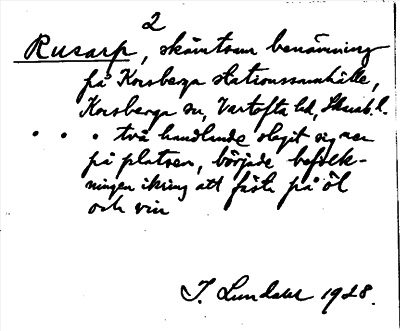 2
Rusarp, skämtsam benämning
på Korsberga stationssamhälle,
Korsberga sn, Vartofta hd, Skarab. l.
. . . två handlande slagit sig ner
på platsen, började befolk-
ningen ikring att fästa på öl
och vin
J. Lundahl 1928.